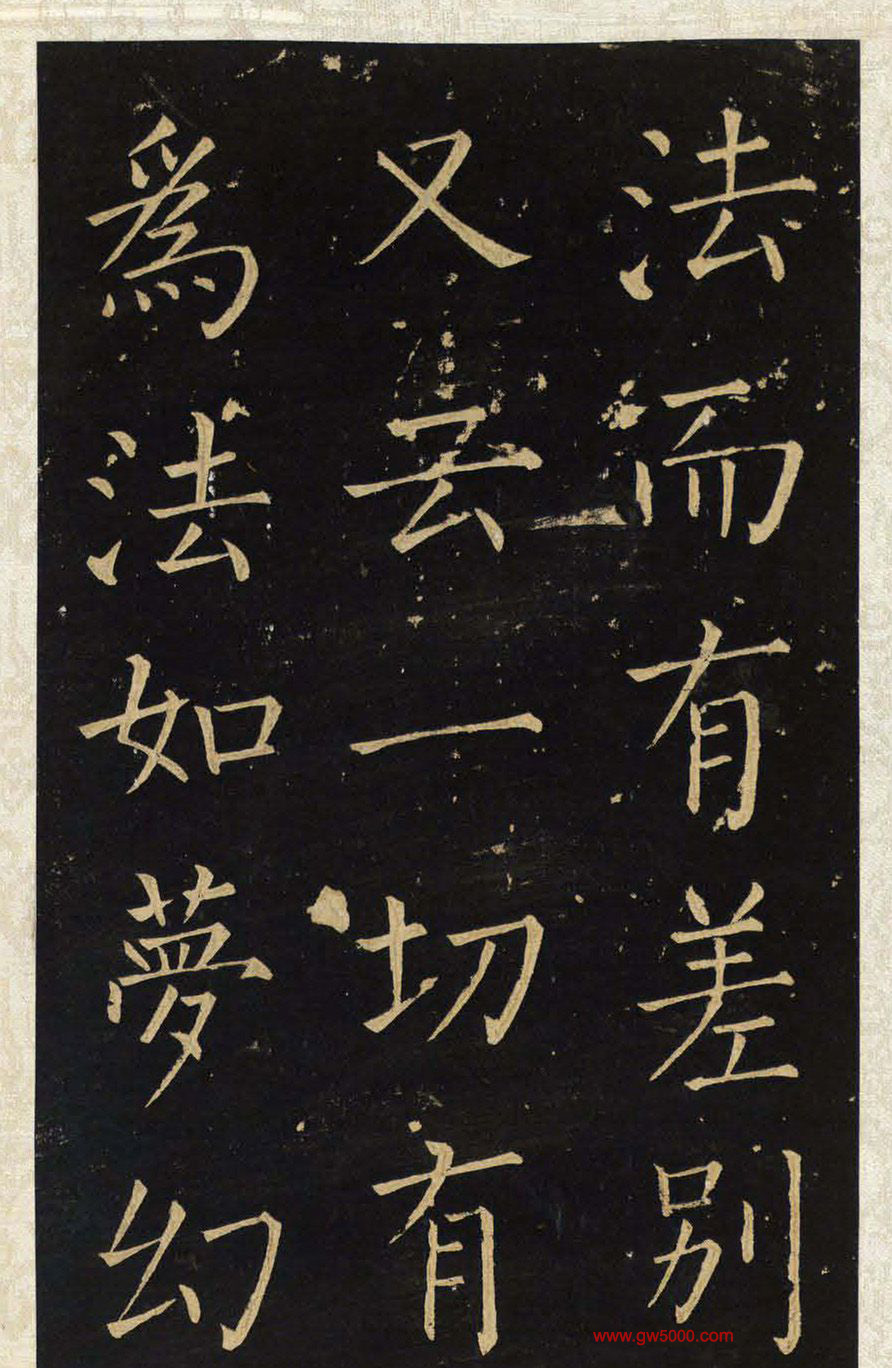 法而有差别
又云一切有
爲法如夢幻
www.gw5000.com